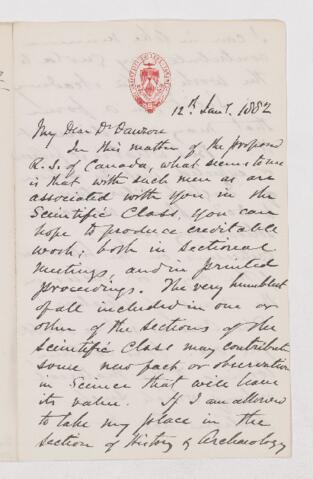 12th Jany. 1882
My Dear Dr Dawson
In this matter of the proposed
R. S. of Canada, what seems to me
is that with such men as are
associated with you in the
Scientific Class, you can
hope to produce creditable
work; both in sectional
meetings, and in printed
proceedings. The very humblest
of all included in one or
other of the sections of the
Scientific Class may contribute
some new fact or observation
in Science that will have
its value. If I am allowed
to take my place in the
section of History & Archaeology